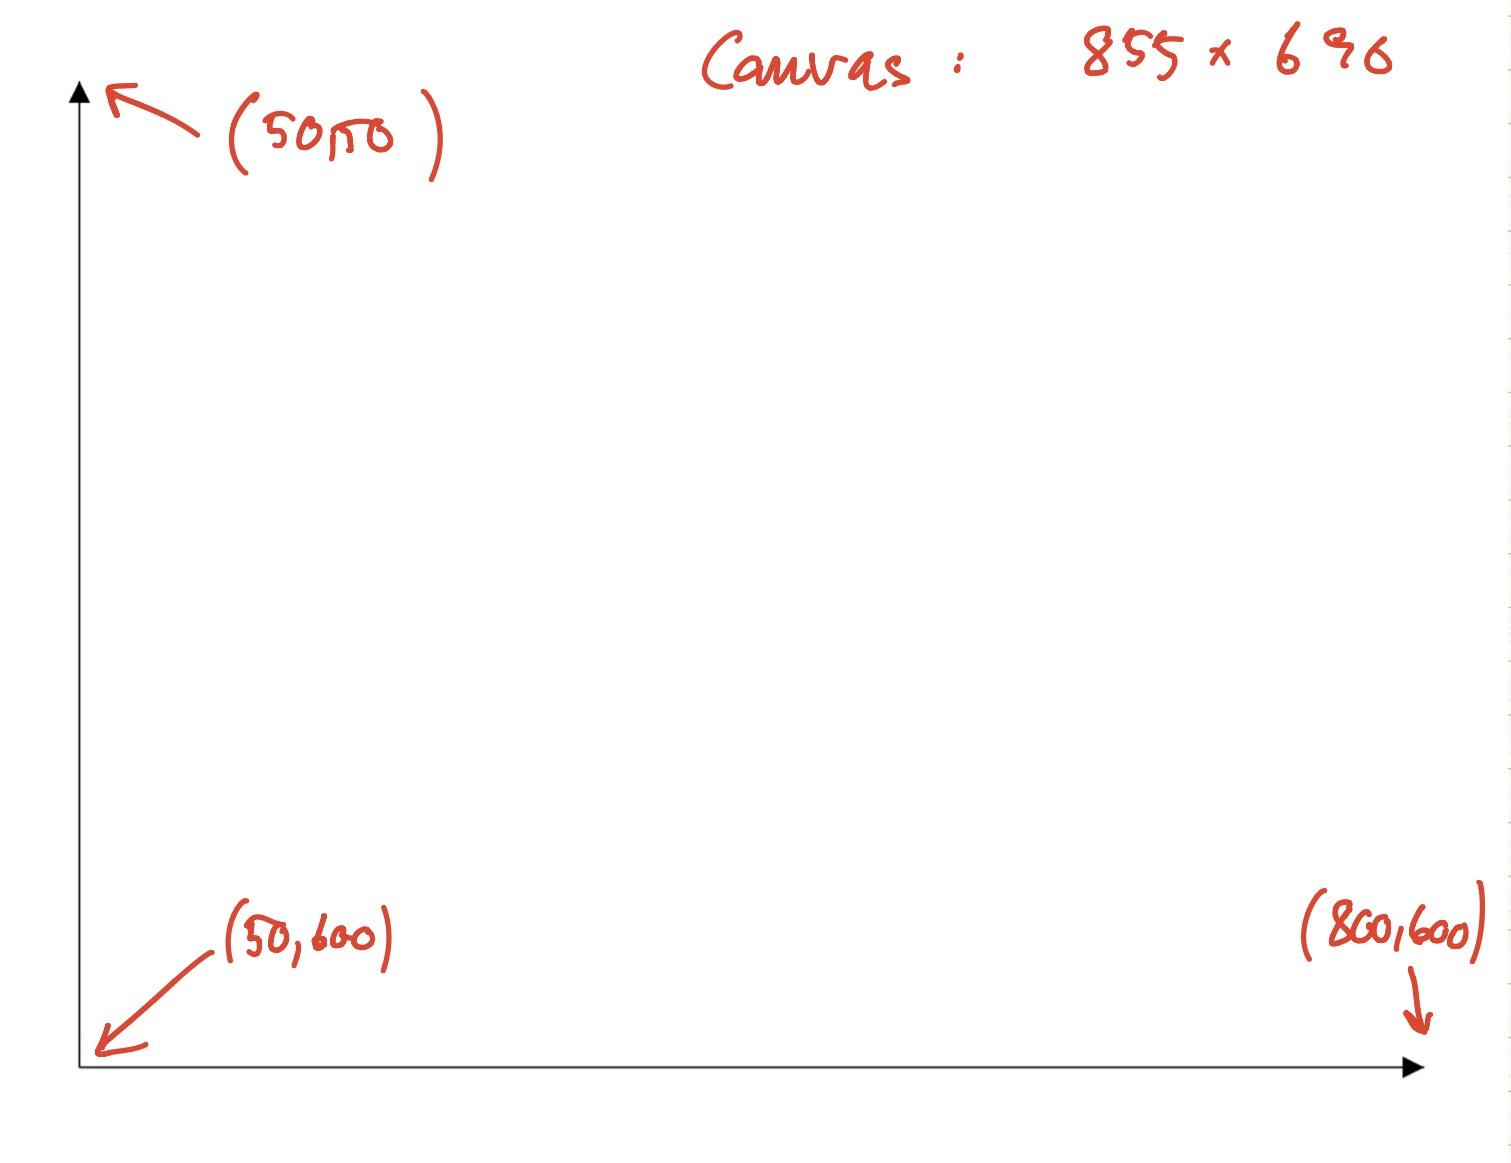 Canvas : 855 x 690
(50,50)
(50,600)
(800,600)